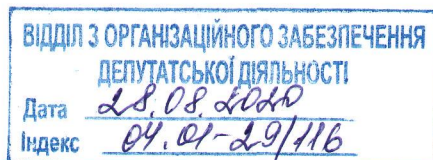 ВІДДІЛ З ОРГАНІЗАЦІЙНОГО ЗАБЕЗПЕЧЕННЯ
ДЕПУТАТСЬКОЇ ДІЯЛЬНОСТІ
Дата 28.08.2020
Індекс 04.01-29/116